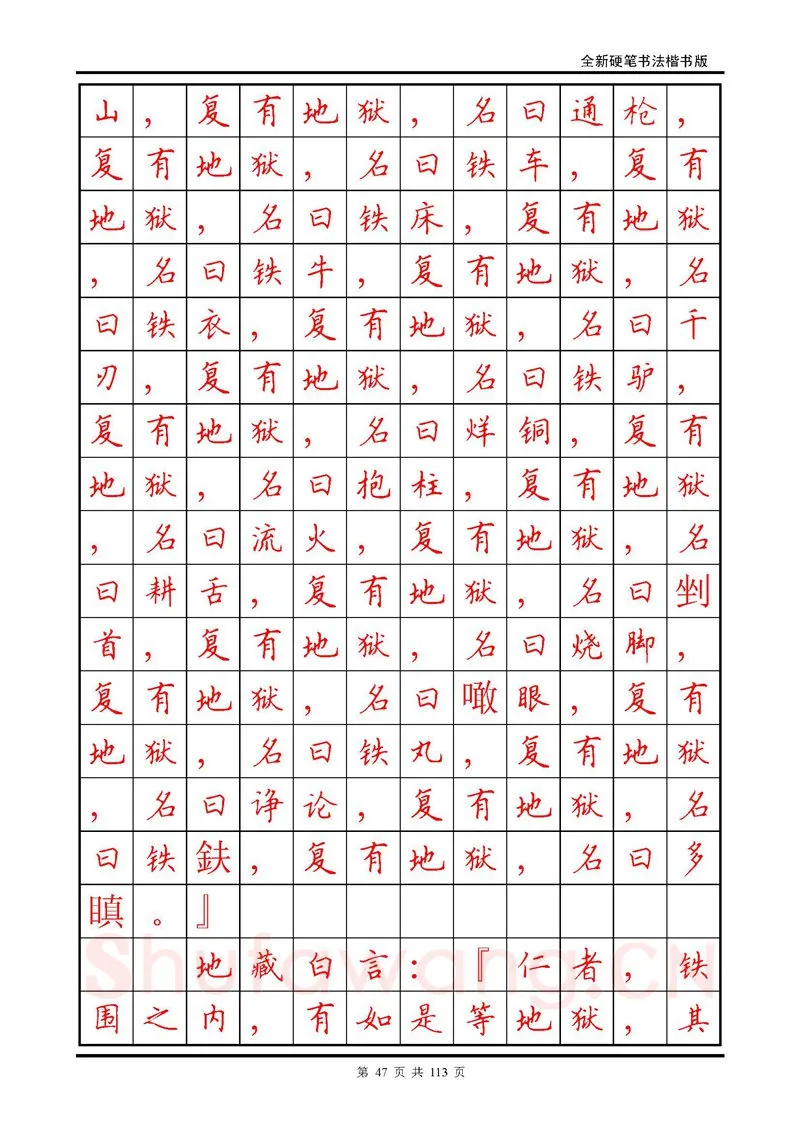 全新硬笔书法楷书版
山，复有地狱，名曰通枪，
复有地狱，名曰铁车，复有
地狱，名曰铁床，复有地狱
，名曰铁牛，复有地狱，名
曰铁衣，复有地狱，名曰千
刃，复有地狱，名曰铁驴，
复有地狱，名曰烊铜，复有
地狱，名曰抱柱，复有地狱
，名曰流火，复有地狱，名
曰耕舌，复有地狱，名曰剉
首，复有地狱，名曰烧脚，
复有地狱，名曰噉眼，复有
地狱，名曰铁丸，复有地狱
，名曰诤论，复有地狱，名
曰铁鈇，复有地狱，名曰多
瞋。』
地藏白言：『仁者，铁
围之内，有如是等地狱，其
Shufawang.CN
第 47 页 共 113 页